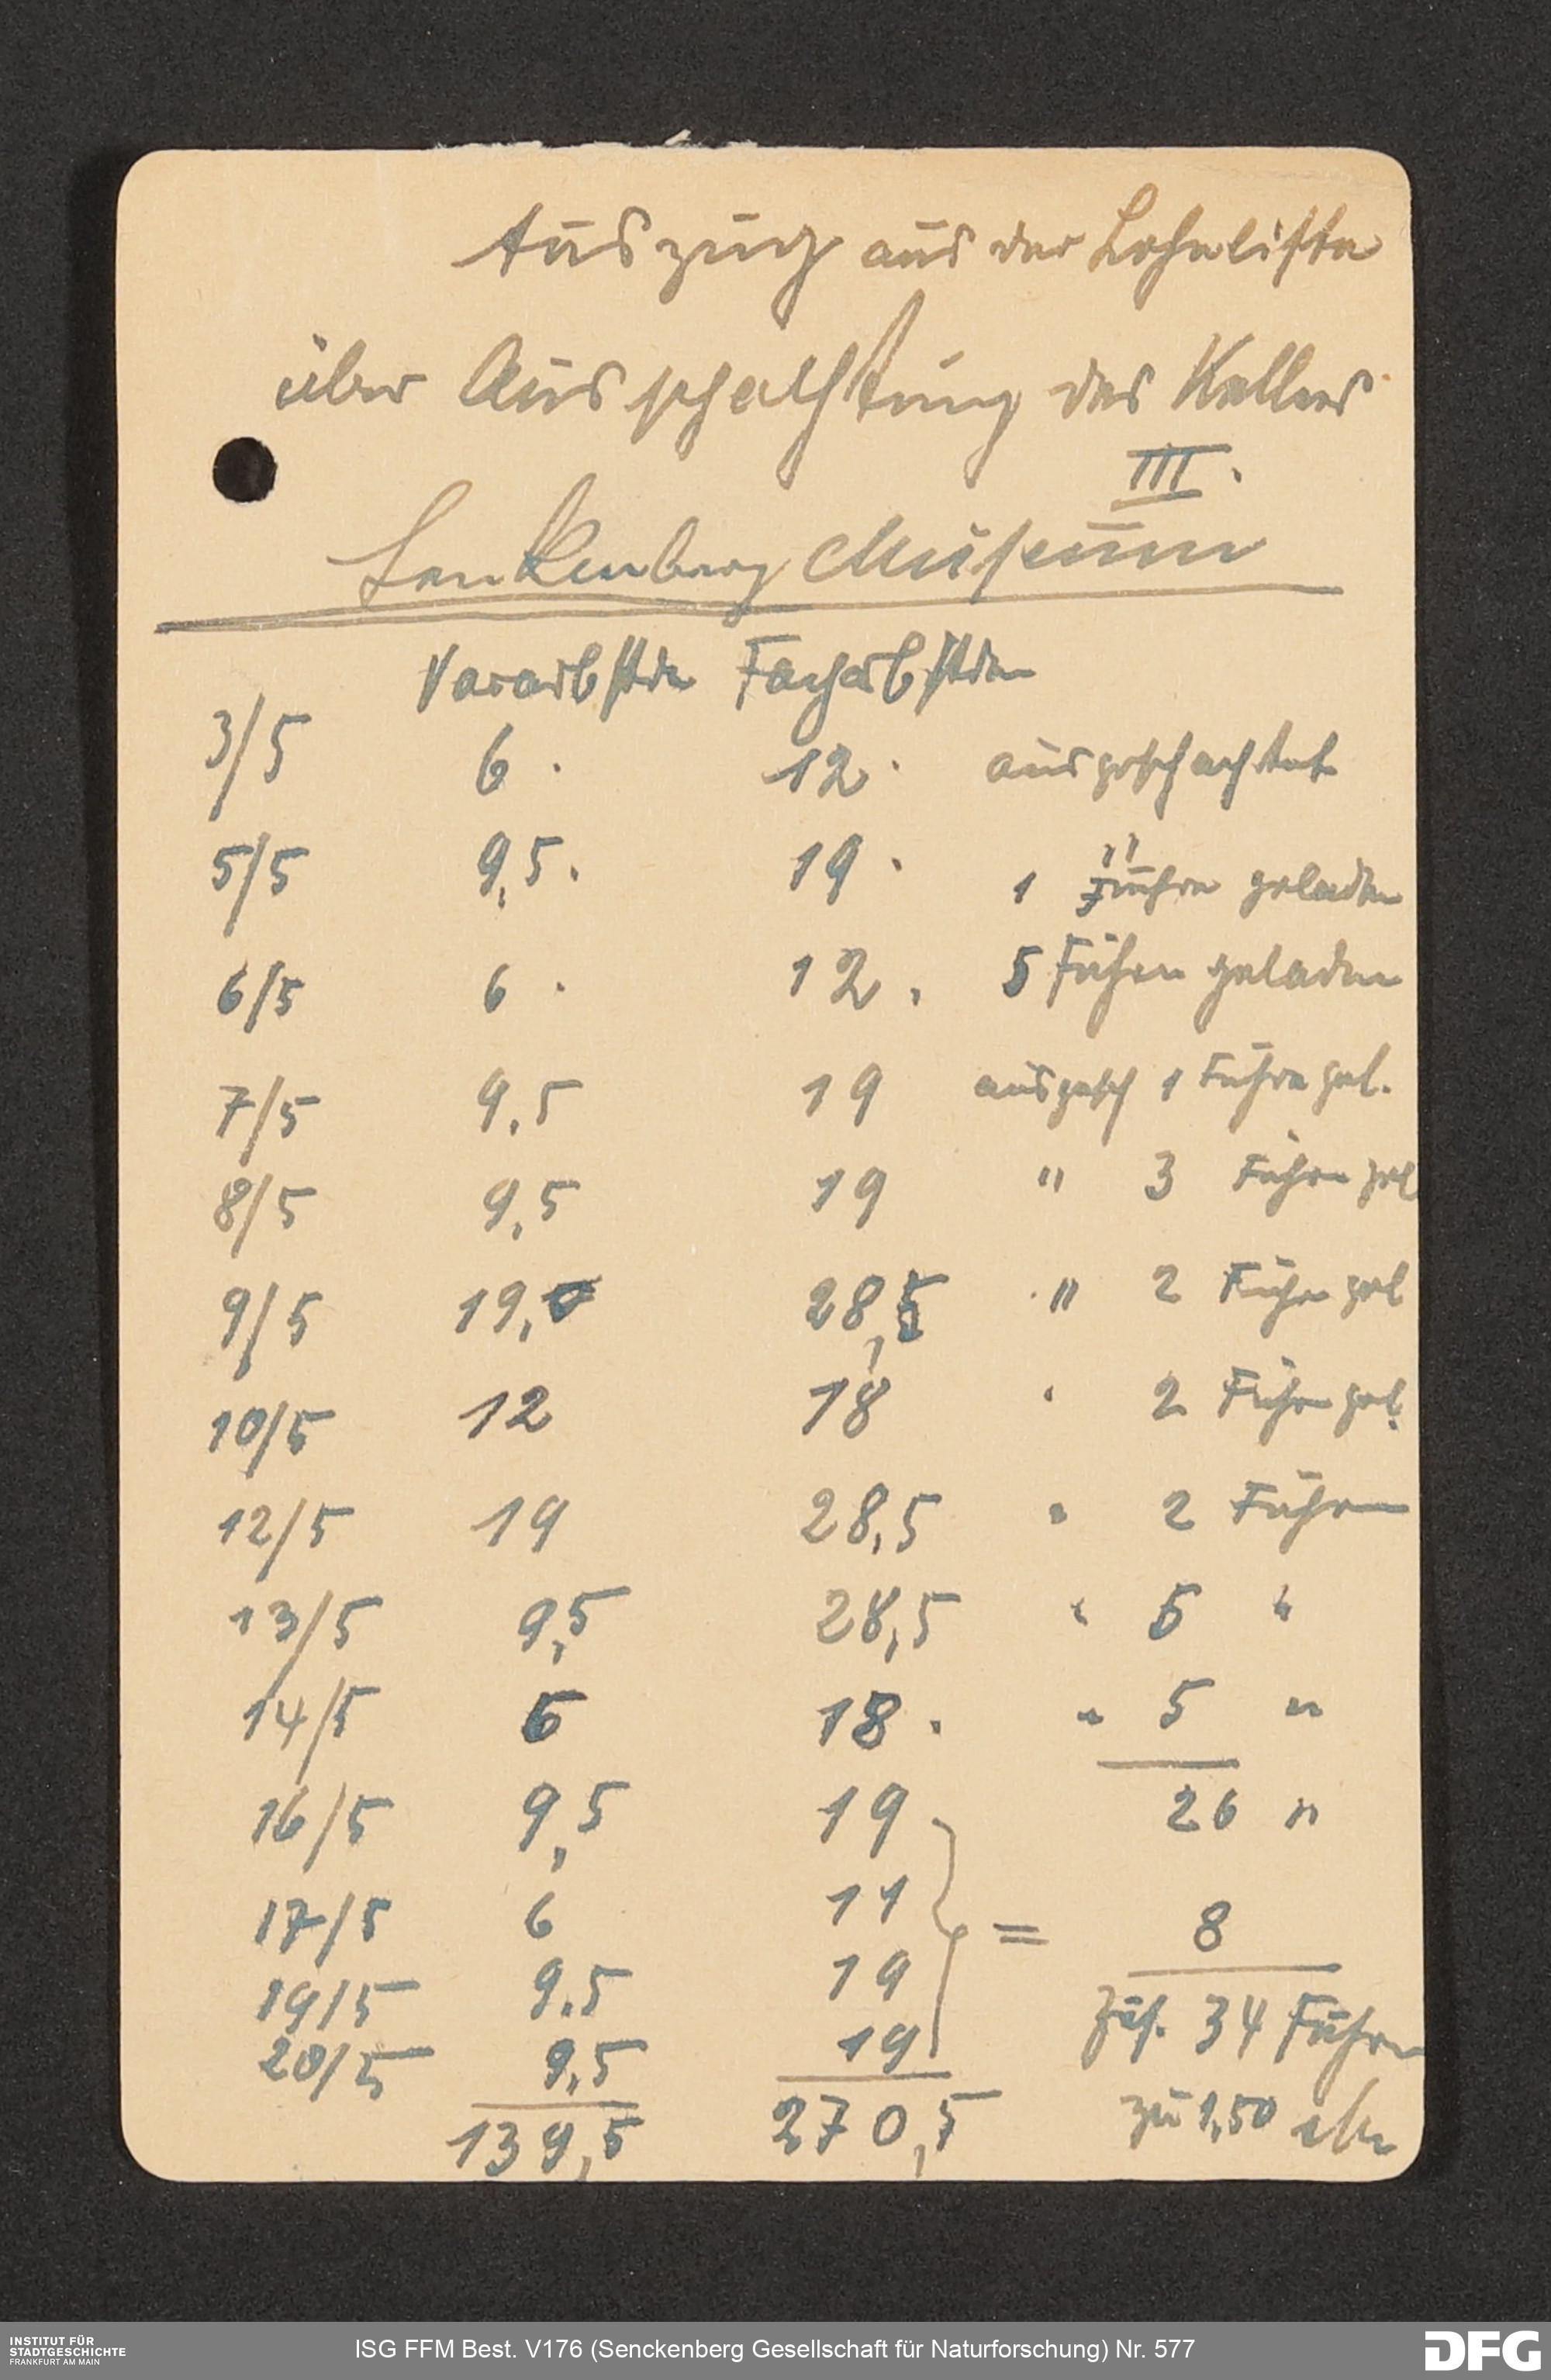 Auszug aus der Lohnliste
über Ausschachtung des Kellers
III.
Senkenberg Museum
Vorarbstdn Facharbstdn
3/5 6. 12. ausgeschachtet
5/5 9,5. 19. 1 " Fuhre geladen
6/5 6. 12. 5 Fuhren geladen
7/5 9,5 19 ausgesch 1 Fuhre gel.
8/5 9,5 19 " 3 Fuhren gel
9/5 19,0 28,5 " 2 Fuhren gel
10/5 12 18 " 2 Fuhren gel.
12/5 19 28,5 " 2 Fuhren
13/5 9,5 28,5 " 5 "
14/5 6 18. " 5 "
16/5 9,5 19 26 "
17/5 6 11 = 8
19/5 9,5 19
20/5 9,5 19 zus. 34 Fuhren
139,5 270,5 zu 1,50
INSTITUT FÜR
STADTGESCHICHTE
FRANKFURT AM MAIN
ISG FFM Best. V176 (Senckenberg Gesellschaft für Naturforschung) Nr. 577
DFG